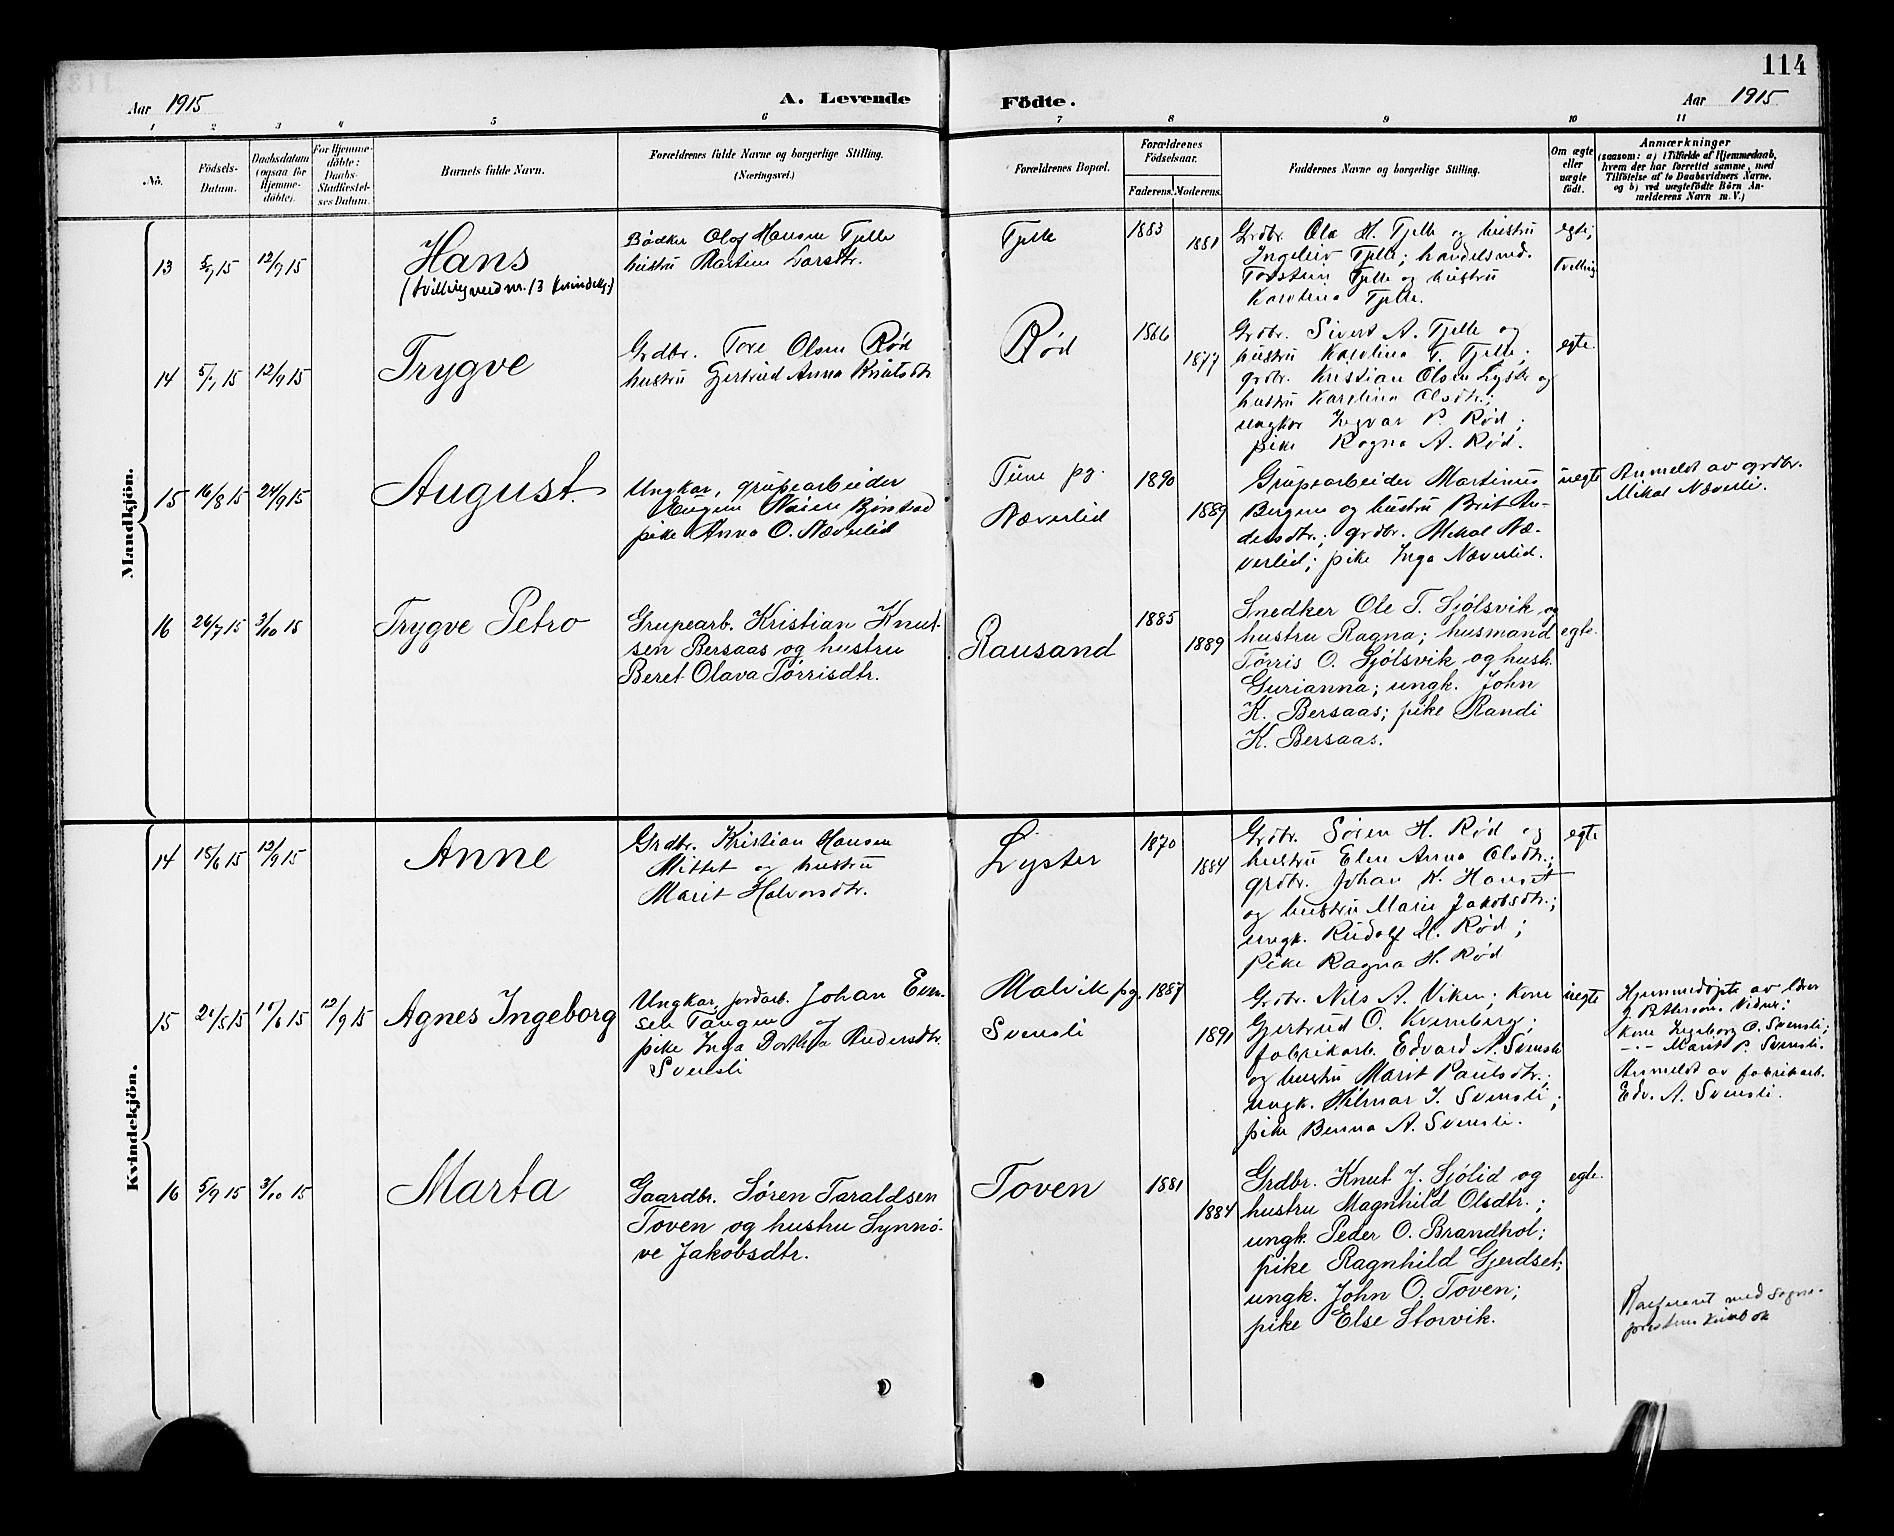 114
Aar 1915
A. Levende Födte.
Aar 1915
1 2 3 4 5 6 7 8 9 10 11
No.
Födsels-
Datum.
Daabsdatum
(ogsaa for
Hjemme-
döbte).
For Hjemme-
döbte:
Daabs-
Stadfæstel-
ses Datum.
Barnets fulde Navn.
Forældrenes fulde Navne og borgerlige Stilling.
(Næringsvei.)
Forældrenes Bopæl.
Forældrenes
Födselsaar.
Faderens. Moderens.
Faddernes Navne og borgerlige Stilling.
Om ægte
eller
uægte
födt.
Anmærkninger
(saasom: a) i Tilfælde af Hjemmedaab,
hvem der har forrettet samme, med
Tilföielse af to Daabsvidners Navne,
og b) ved uægtefödte Börn An-
melderens Navn m. V.)
Mandkjön.
13
5/9 15
12/9 15
Hans
(tvilling med nr. 13 kvindekj.)
Bødker Olaf Hansen Tjelle
hustru Martine Larsdtr.
Tjelle
1883
1881
Grdbr. Ola H. Tjelle og hustru
Ingeleiv Tjelle; handelsmd.
Torstein Tjelle og hustru
Karolina Tjelle.
egte;
Tvilling
14
5/7 15
12/9 15
Trygve
Grdbr. Tore Olsen Rød
hustru Gjertrud Anna Knutsdtr.
Rød
1866
1877
Grdbr. Sivert A. Tjelle og
hustru Karolina T. Tjelle;
grdbr. Kristian Olsen Lyster og
hustru Karolina Olsdtr.;
ungkar Ingvar P. Rød;
pike Ragna A. Rød.
egte.
15
16/8 15
24/9 15
August
Ungkar, grupearbeider
Eugen
pike Anna O. Næverlid
Tune pg.
Næverlid
1890
1889
Grupearbeider Martinus
Bergum og hustru Brit An-
dersdtr.; grdbr. Mikal Næ-
verlid; pike Inga Næverlid.
uegte
Anmeldt av grdbr.
Mikal Næverli.
16
26/7 15
3/10 15
Trygve Petro
Grupearb. Kristian Knut-
sen Bersaas og hustru
Beret Olava Tørrisdtr.
Rausand
1885
1889
Snedker Ole T. Sjølsvik og
hustru Ragna; husmand
Tørris O. Sjølsvik og hustr.
Gurianna; ungk. John
K. Bersaas; pike Randi
K. Bersaas.
egte.
Kvindekjön.
14
18/6 15
12/9 15
Anne
Grdbr. Kristian Hansen
Mittet og hustru
Marit Halvorsdtr.
Lyster
1870
1884
Grdbr. Søren H. Rød og
hustru Elen Anna Olsdtr.;
grdbr. Johan K. Hanset
og hustru Marie Jakobsdtr.;
ungk. Rudolf M. Rød;
pike Ragna H. Rød
egte
15
24/5 15
15/6 15
12/9 15
Agnes Ingeborg
Ungkar, jordarb. Johan Een-
sen Tangen og
pike Inga Dorthea Andersdtr.
Svensli
Malvik pg.
Svensli
1887
1891
Grdbr. Nils A. Viken; kone
Gjertrud O. Kvernberg;
fabrikarb. Edvard A. Svensli
og hustru Marit Paulsdtr.;
ungk. Hilmar I. Svensli;
pike Benna A. Svensli.
uegte
Hjemmedøpte av lærer
J. Petterson. Vidner:
kone Ingeborg O. Svensli;
-"- Marit P. Svensli.
Anmeldt av fabrikarb.
Edv. A. Svensli.
16
5/9 15
3/10 15
Marta
Gaardbr. Søren Taraldsen
Toven og hustru Synnø-
ve Jakobsdtr.
Toven
1881
1884
Grdbr. Knut J. Sjølid og
hustru Magnhild Olsdtr.;
ungk. Peder O. Brandhol;
pike Ragnhild Gjerdset;
ungk. John O. Toven;
pike Else Storvik.
egte.
med sogne-
prestens